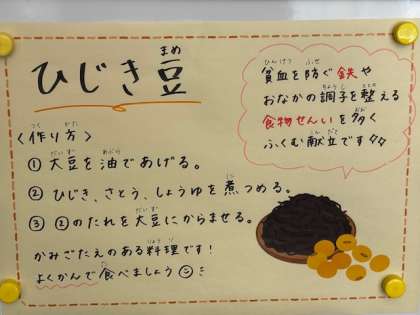 ひじき豆
〈作り方〉
①大豆を油であげる。
②ひじき、さとう、しょうゆを煮つめる。
③②のたれを大豆にからませる。
かみごたえのある料理です!
よくかんで食べましょう
貧血を防ぐ鉄や
おなかの調子を整える
食物せんいを多く
ふくむ献立です